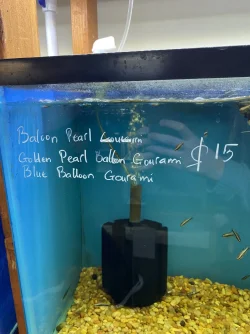 Baloon Pearl Gourami
Golden Pearl Balloon Gourami $15
Blue Balloon Gourami